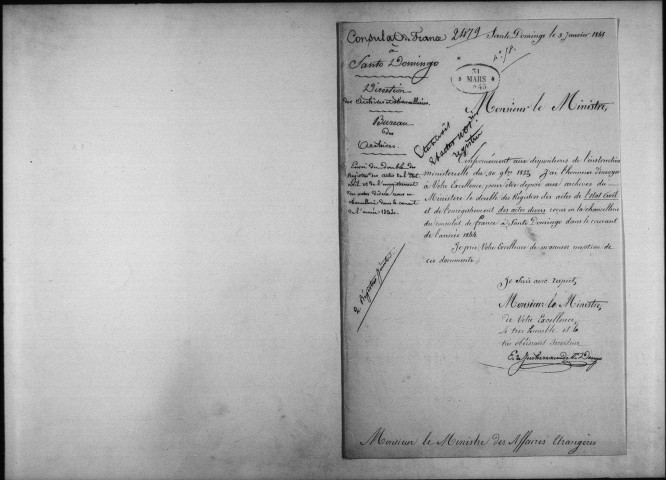 Consulat de France
à
Santo Domingo
Direction
des Archives et chancelleries.
Bureau
des
Archives.
Envoi du double des
Registres des actes de l'Etat
Civil et de l'enregistrement
des actes divers reçus en
chancellerie dans le courant
de l'année 1844.
2 Registres joints
2472
Santo Domingo le 5 Janvier 1845
31
MARS
45
Monsieur le Ministre,
Conformément aux dispositions de l'instruction
ministérielle du 30 9bre 1833, J'ai l'honneur d'envoyer
à Votre Excellence, pour être déposé aux archives du
Ministère le double des Registres des actes de l'Etat Civil
et de l'enregistrement des actes divers reçus en la chancellerie
du consulat de france à Santo Domingo dans le courant
de l'année 1844.
Je prie Votre Excellence de m'accuser réception de
ces documents.
Je suis avec respect,
Monsieur le Ministre,
de Votre Excellence,
le très humble et le
très obéissant serviteur
E. de Juchereau de St. Denys
Monsieur le Ministre des Affaires Etrangères